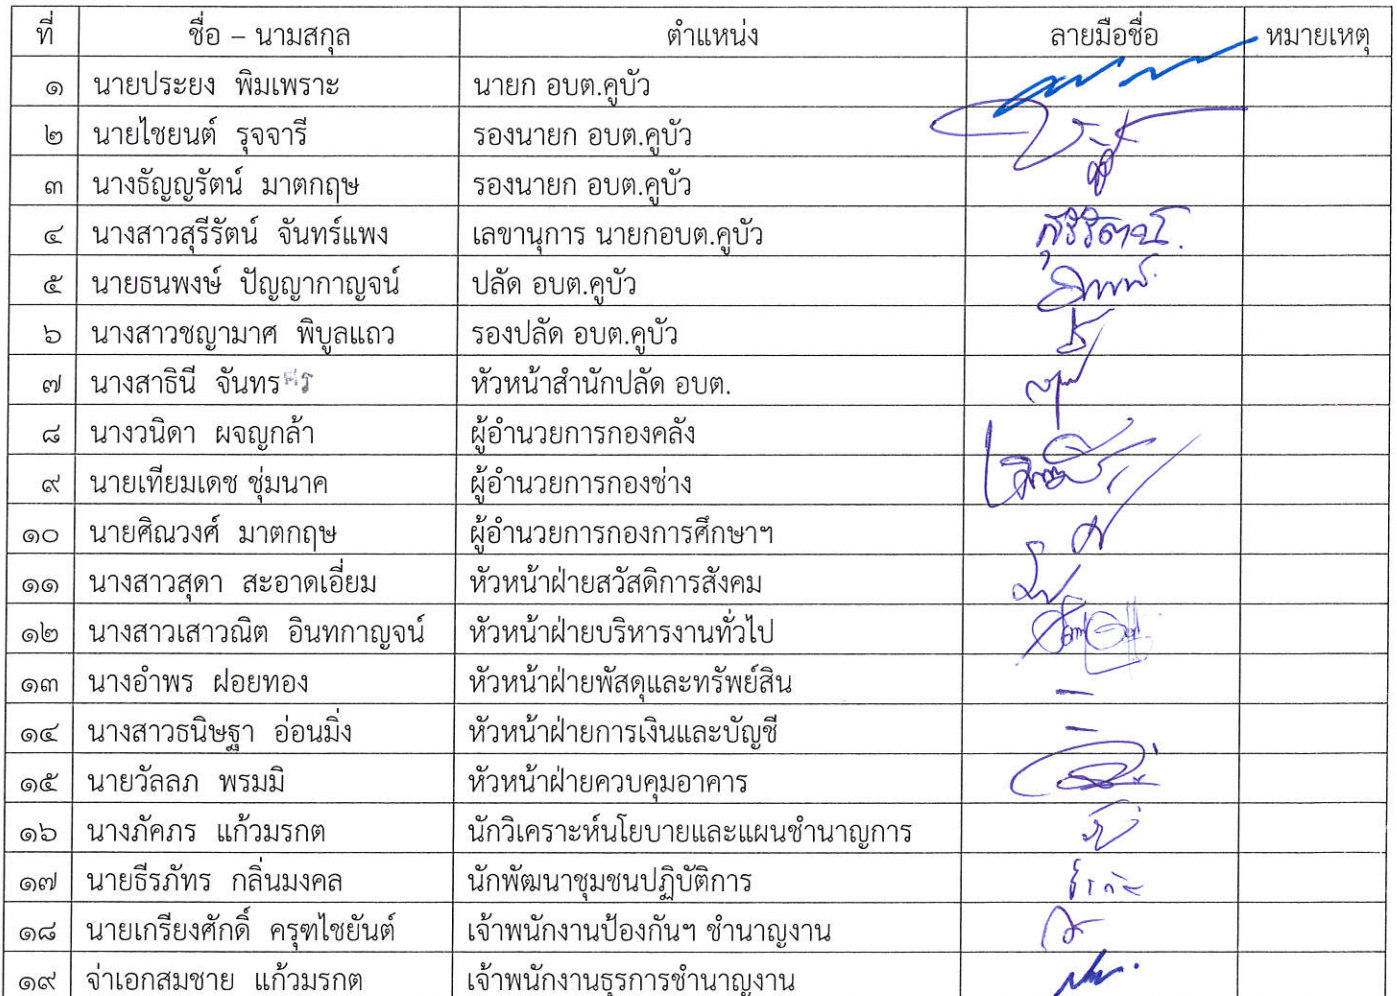 ที่ ชื่อ – นามสกุล ตำแหน่ง ลายมือชื่อ หมายเหตุ
๑ นายประยง พิมเพราะ นายก อบต.คูบัว
๒ นายไชยนต์ รุจจารี รองนายก อบต.คูบัว
๓ นางธัญญรัตน์ มาตกฤษ รองนายก อบต.คูบัว
๔ นางสาวสุรีรัตน์ จันทร์แพง เลขานุการ นายกอบต.คูบัว สุรีรัตน์
๕ นายธนพงษ์ ปัญญากาญจน์ ปลัด อบต.คูบัว
๖ นางสาวชญามาศ พิบูลแถว รองปลัด อบต.คูบัว
๗ นางสาธินี จันทร หัวหน้าสำนักปลัด อบต.
๘ นางวนิดา ผจญกล้า ผู้อำนวยการกองคลัง
๙ นายเทียมเดช ชุ่มนาค ผู้อำนวยการกองช่าง
๑๐ นายศิณวงศ์ มาตกฤษ ผู้อำนวยการกองการศึกษาฯ
๑๑ นางสาวสุดา สะอาดเอี่ยม หัวหน้าฝ่ายสวัสดิการสังคม
๑๒ นางสาวเสาวณิต อินทกาญจน์ หัวหน้าฝ่ายบริหารงานทั่วไป
๑๓ นางอำพร ฝอยทอง หัวหน้าฝ่ายพัสดุและทรัพย์สิน –
๑๔ นางสาวธนิษฐา อ่อนมิ่ง หัวหน้าฝ่ายการเงินและบัญชี –
๑๕ นายวัลลภ พรมมิ หัวหน้าฝ่ายควบคุมอาคาร
๑๖ นางภัคภร แก้วมรกต นักวิเคราะห์นโยบายและแผนชำนาญการ
๑๗ นายธีรภัทร กลิ่นมงคล นักพัฒนาชุมชนปฏิบัติการ
๑๘ นายเกรียงศักดิ์ ครุฑไชยันต์ เจ้าพนักงานป้องกันฯ ชำนาญงาน
๑๙ จ่าเอกสมชาย แก้วมรกต เจ้าพนักงานธุรการชำนาญงาน